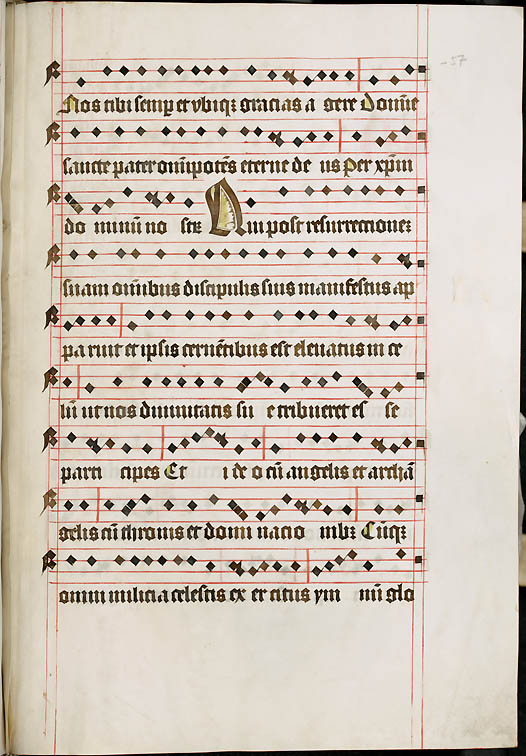 57
Nos tibi semꝑ et vbiqꝫ gracias a gere Domīe
sancte pater omīpotēs eterne de us Per xp̄m
do minūm no strꝫ Qui post resurrectioneꝫ
suam omībus discipulis suis manifestus ap
pa ruit et ipsis cernētibus est eleuatus in ce
lū ut nos diuinitatis su e tribueret es se
parti cipes Et i de o cū angelis et archā
gelis cū thronis et domi nacio nibꝫ Cūqꝫ
omni milicia celestis ex er citus ym nū glo